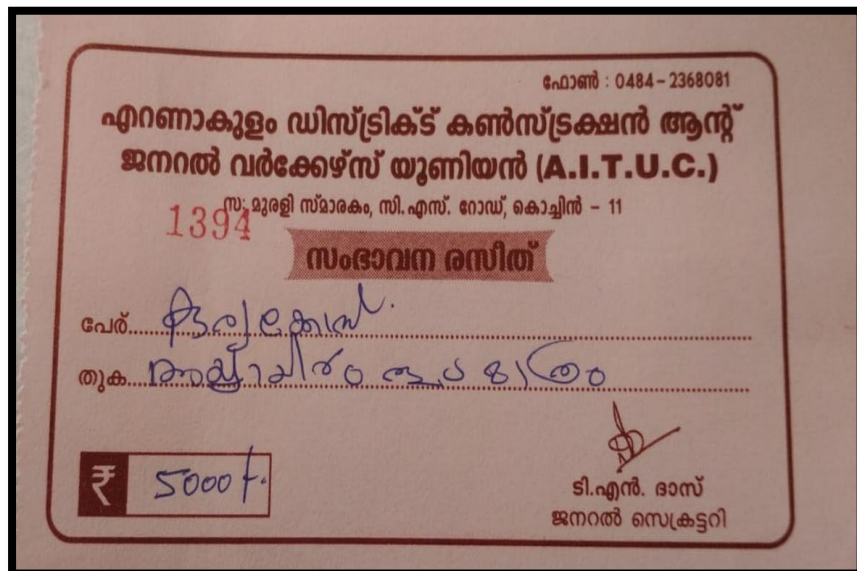 ഫോൺ : 0484-2368081
എറണാകുളം ഡിസ്ട്രിക്ട് കൺസ്ട്രക്ഷൻ ആന്റ്
ജനറൽ വർക്കേഴ്സ് യൂണിയൻ (A.I.T.U.C.)
സ: മുരളി സ്മാരകം, സി.എസ്. റോഡ്, കൊച്ചിൻ - 11
1394
സംഭാവന രസീത്
പേര് കുര്യക്കോസ്
തുക അയ്യായിരം രൂപ മാത്രം
₹ 5000/-
ടി.എൻ. ദാസ്
ജനറൽ സെക്രട്ടറി